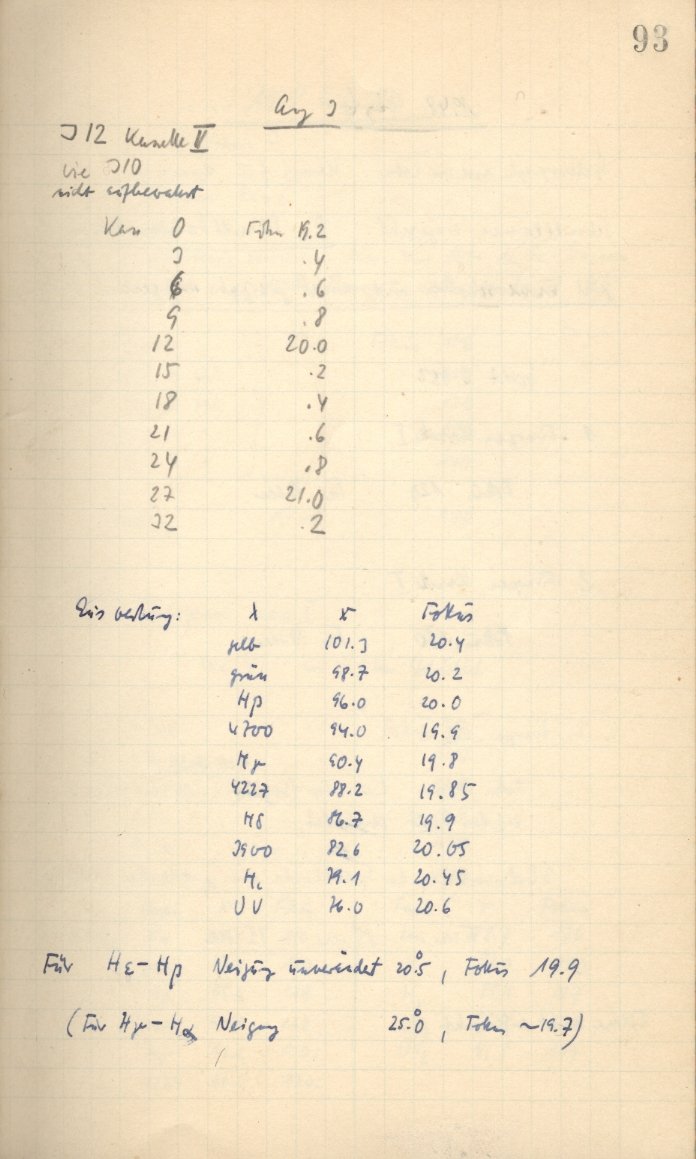 93
Aug 3
312 Kassette II
wie 310
nicht aufbewahrt
Kass 0 Fokus 19.2
3 .4
6 .6
9 .8
12 20.0
15 .2
18 .4
21 .6
24 .8
27 21.0
32 .2
λ x Fokus
gelb 101.3 20.4
grün 98.7 20.2
Hβ 96.0 20.0
4700 94.0 19.9
Hγ 90.4 19.8
4227 88.2 19.85
Hδ 86.7 19.9
3900 82.6 20.05
79.1 20.45
UV 76.0 20.6
Für Hε – Hβ Neigung unverändert 20.°5, Fokus 19.9
(Für Hγ – Hα Neigung 25.°0, Fokus ~19.7)